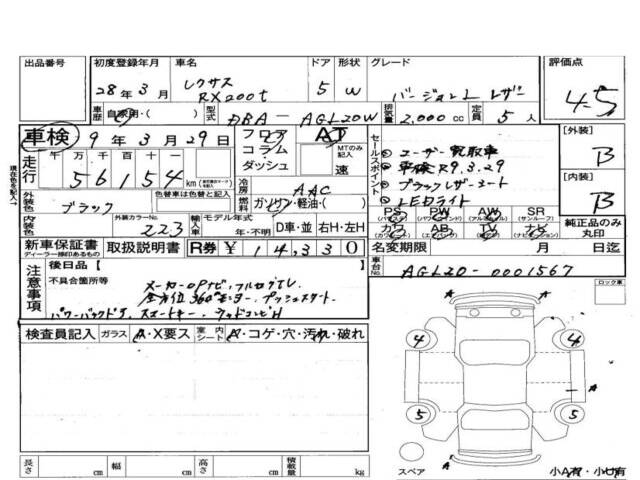 出品番号 初度登録年月 車名 ドア 形状 グレード 評価点
28年3月 レクサス RX200t 5 W バージョンL レザー 4.5
車歴 自家用・( ) 型式 DBA - AGL20W 排気量 2,000 cc 定員 5 人
車検 9年3月29日 フロア AT
コラム MTのみ記入
ダッシュ 速
走行 十万 万 千 百 十 一
56154 km
セールスポイント
① ユーザー買取車
② 車検R9.3.29
③ ブラックレザーシート
④ LEDライト
[外装] B
[内装] B
現在色を記入
外装色 ブラック 色替車は色替と記入 冷房 AAC
燃料 ガソリン・軽油・( )
内装色 外装カラーNo. 223 輸入車 モデル年式 年・不明 D車・並 右H・左H
PS (パワステ) PW (パワーウィンド) AW (アルミホイル) SR (サンルーフ)
カワ (カワシート) AB (エアバック) TV (テレビ) ナビ (ナビゲーション)
純正品のみ丸印
新車保証書 ディーラー捺印あるもの 取扱説明書 R券 ¥ 14,330
名変期限 月 日迄
車台No. AGL20-0001567
注意事項
後日品[ ]
不具合箇所等
メーカーOPナビ、フルセグTV、
全方位360°モニター、プッシュスタート
パワーバックドア、スマートキー、
検査員記入 ガラス A・X要ス 室内シート A・コゲ・穴・汚れ・破れ
ロック車
4 4
A
5 5
A
A
スペア
小A有・小サ有
長さ cm 幅 cm 高さ cm 積載量 kg